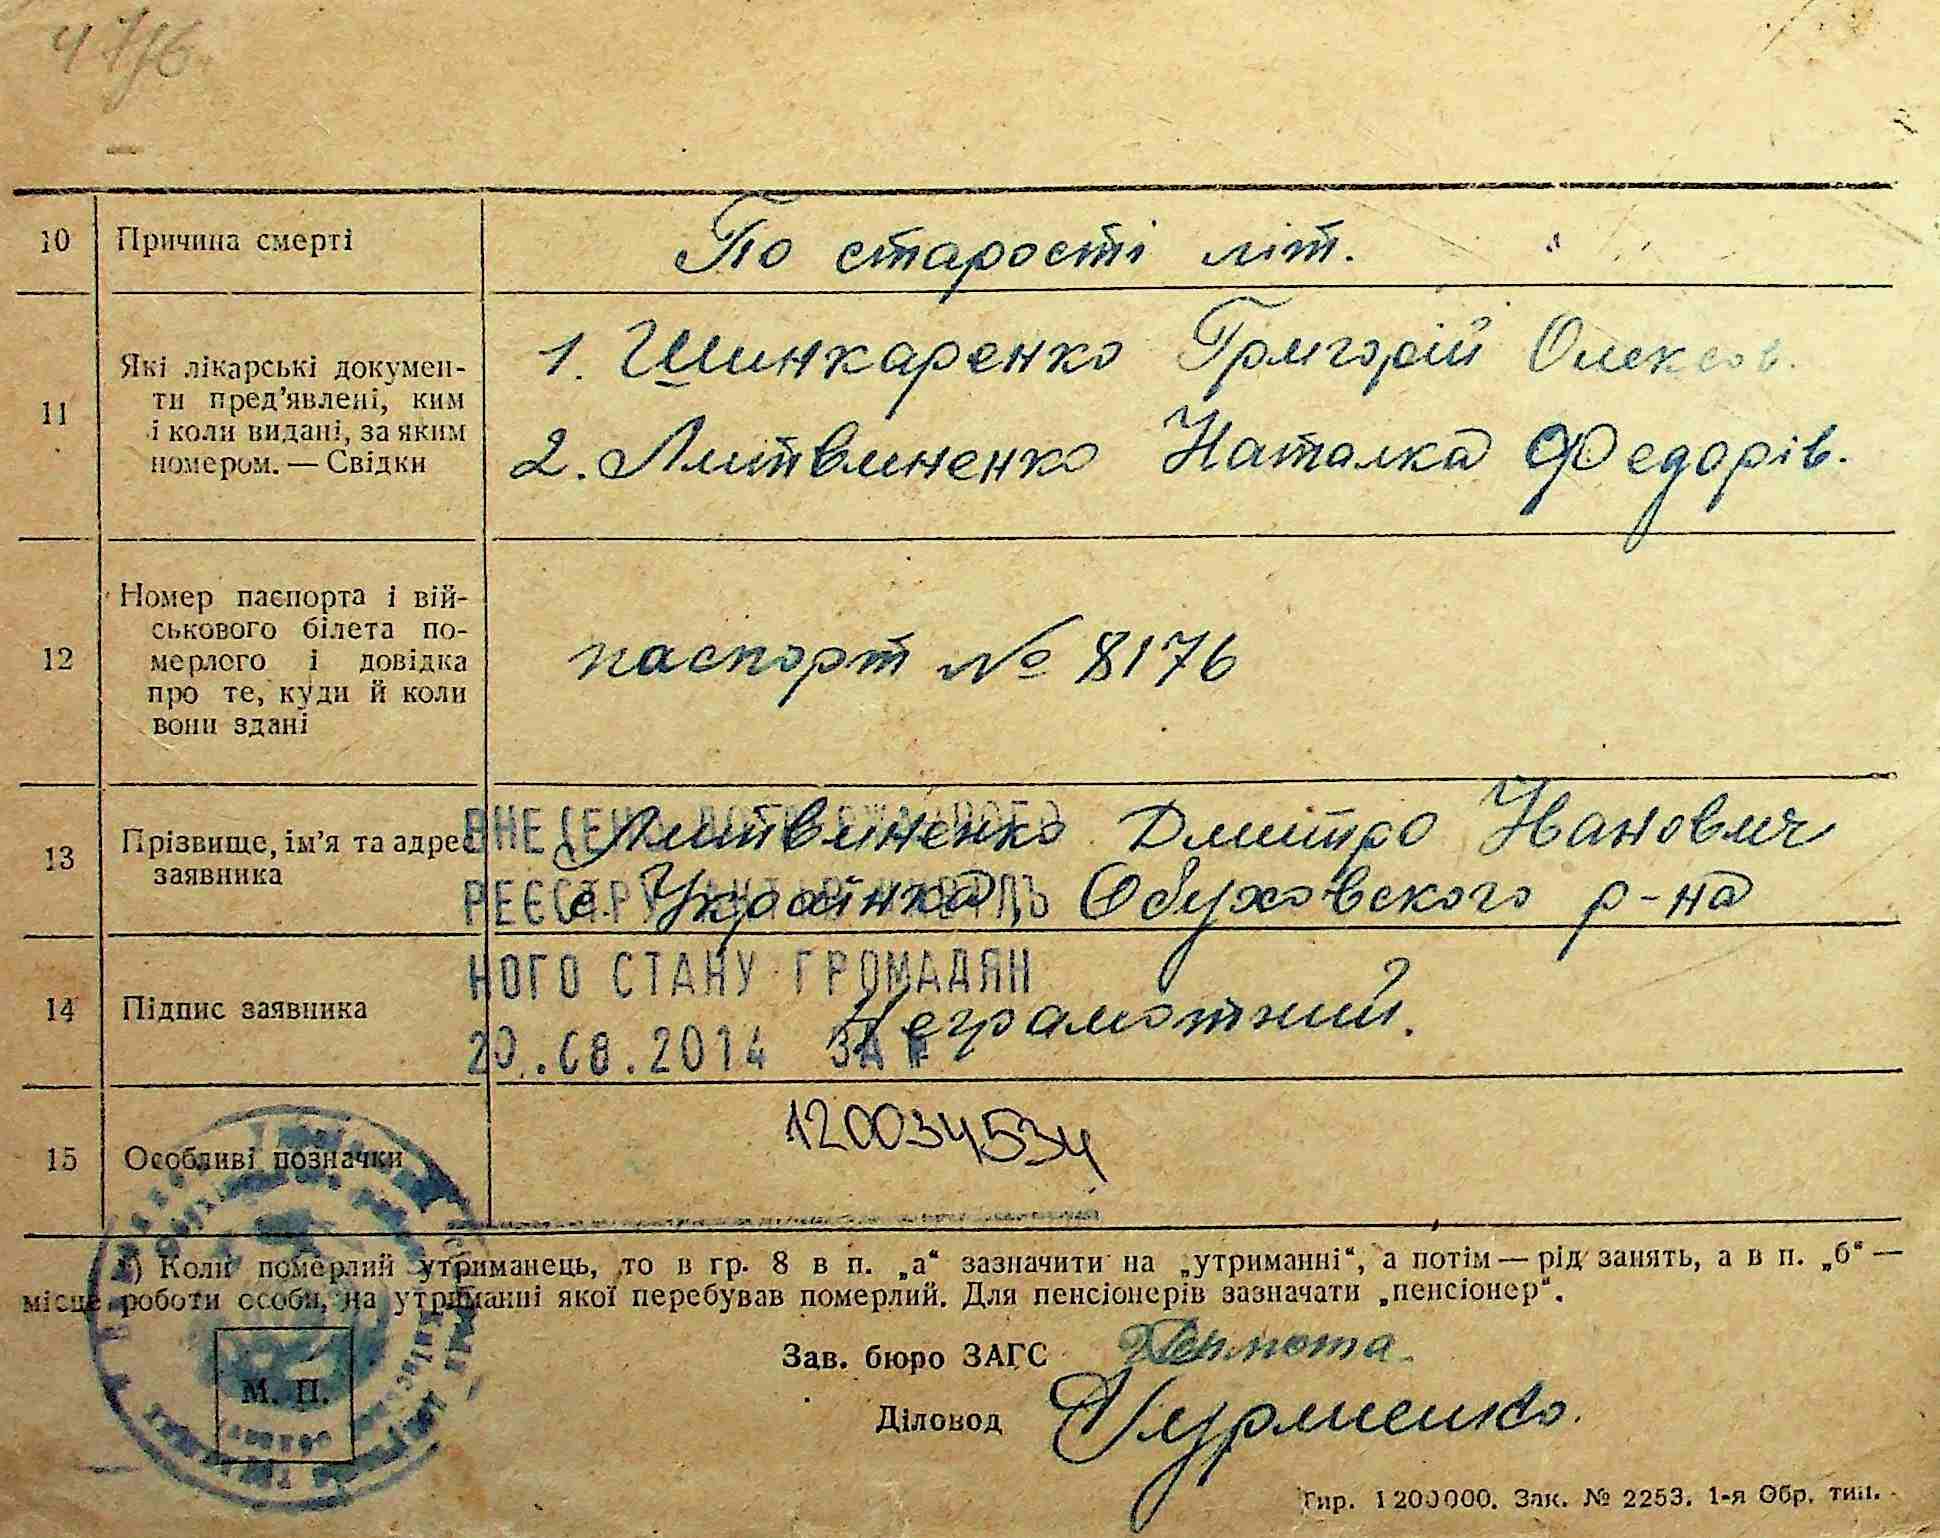 10 Причина смерті По старості літ.
1. Шинкаренко Григорій Олексов.
11 Які лікарські докумен-
ти пред'явлені, ким
і коли видані, за яким
номером. — Свідки
2. Литвиненко Наталка Федорів.
12 Номер паспорта і вій-
ськового білета по-
мерлого і довідка
про те, куди й коли
вони здані
паспорт № 8176
13 Прізвище, ім'я та адрес
заявника
Литвиненко Дмитро Іванович
с. Українка, Обуховского р-на
ВНЕСЕНО ДО ДЕРЖАВНОГО
РЕЄСТРУ АКТІВ ЦИВІЛЬ
НОГО СТАНУ ГРОМАДЯН
20.08.2014 ЗА №
14 Підпис заявника Неграмотний.
15 Особливі позначки 120034534
¹) Коли померлий утриманець, то в гр. 8 в п. „а“ зазначити на „утриманні“, а потім — рід занять, а в п. „б“ —
місце роботи особи, на утриманні якої перебував померлий. Для пенсіонерів зазначати „пенсіонер“.
Зав. бюро ЗАГС
М. П.
Діловод
Тир. 1200000. Зак. № 2253. 1-я Обр. тип.